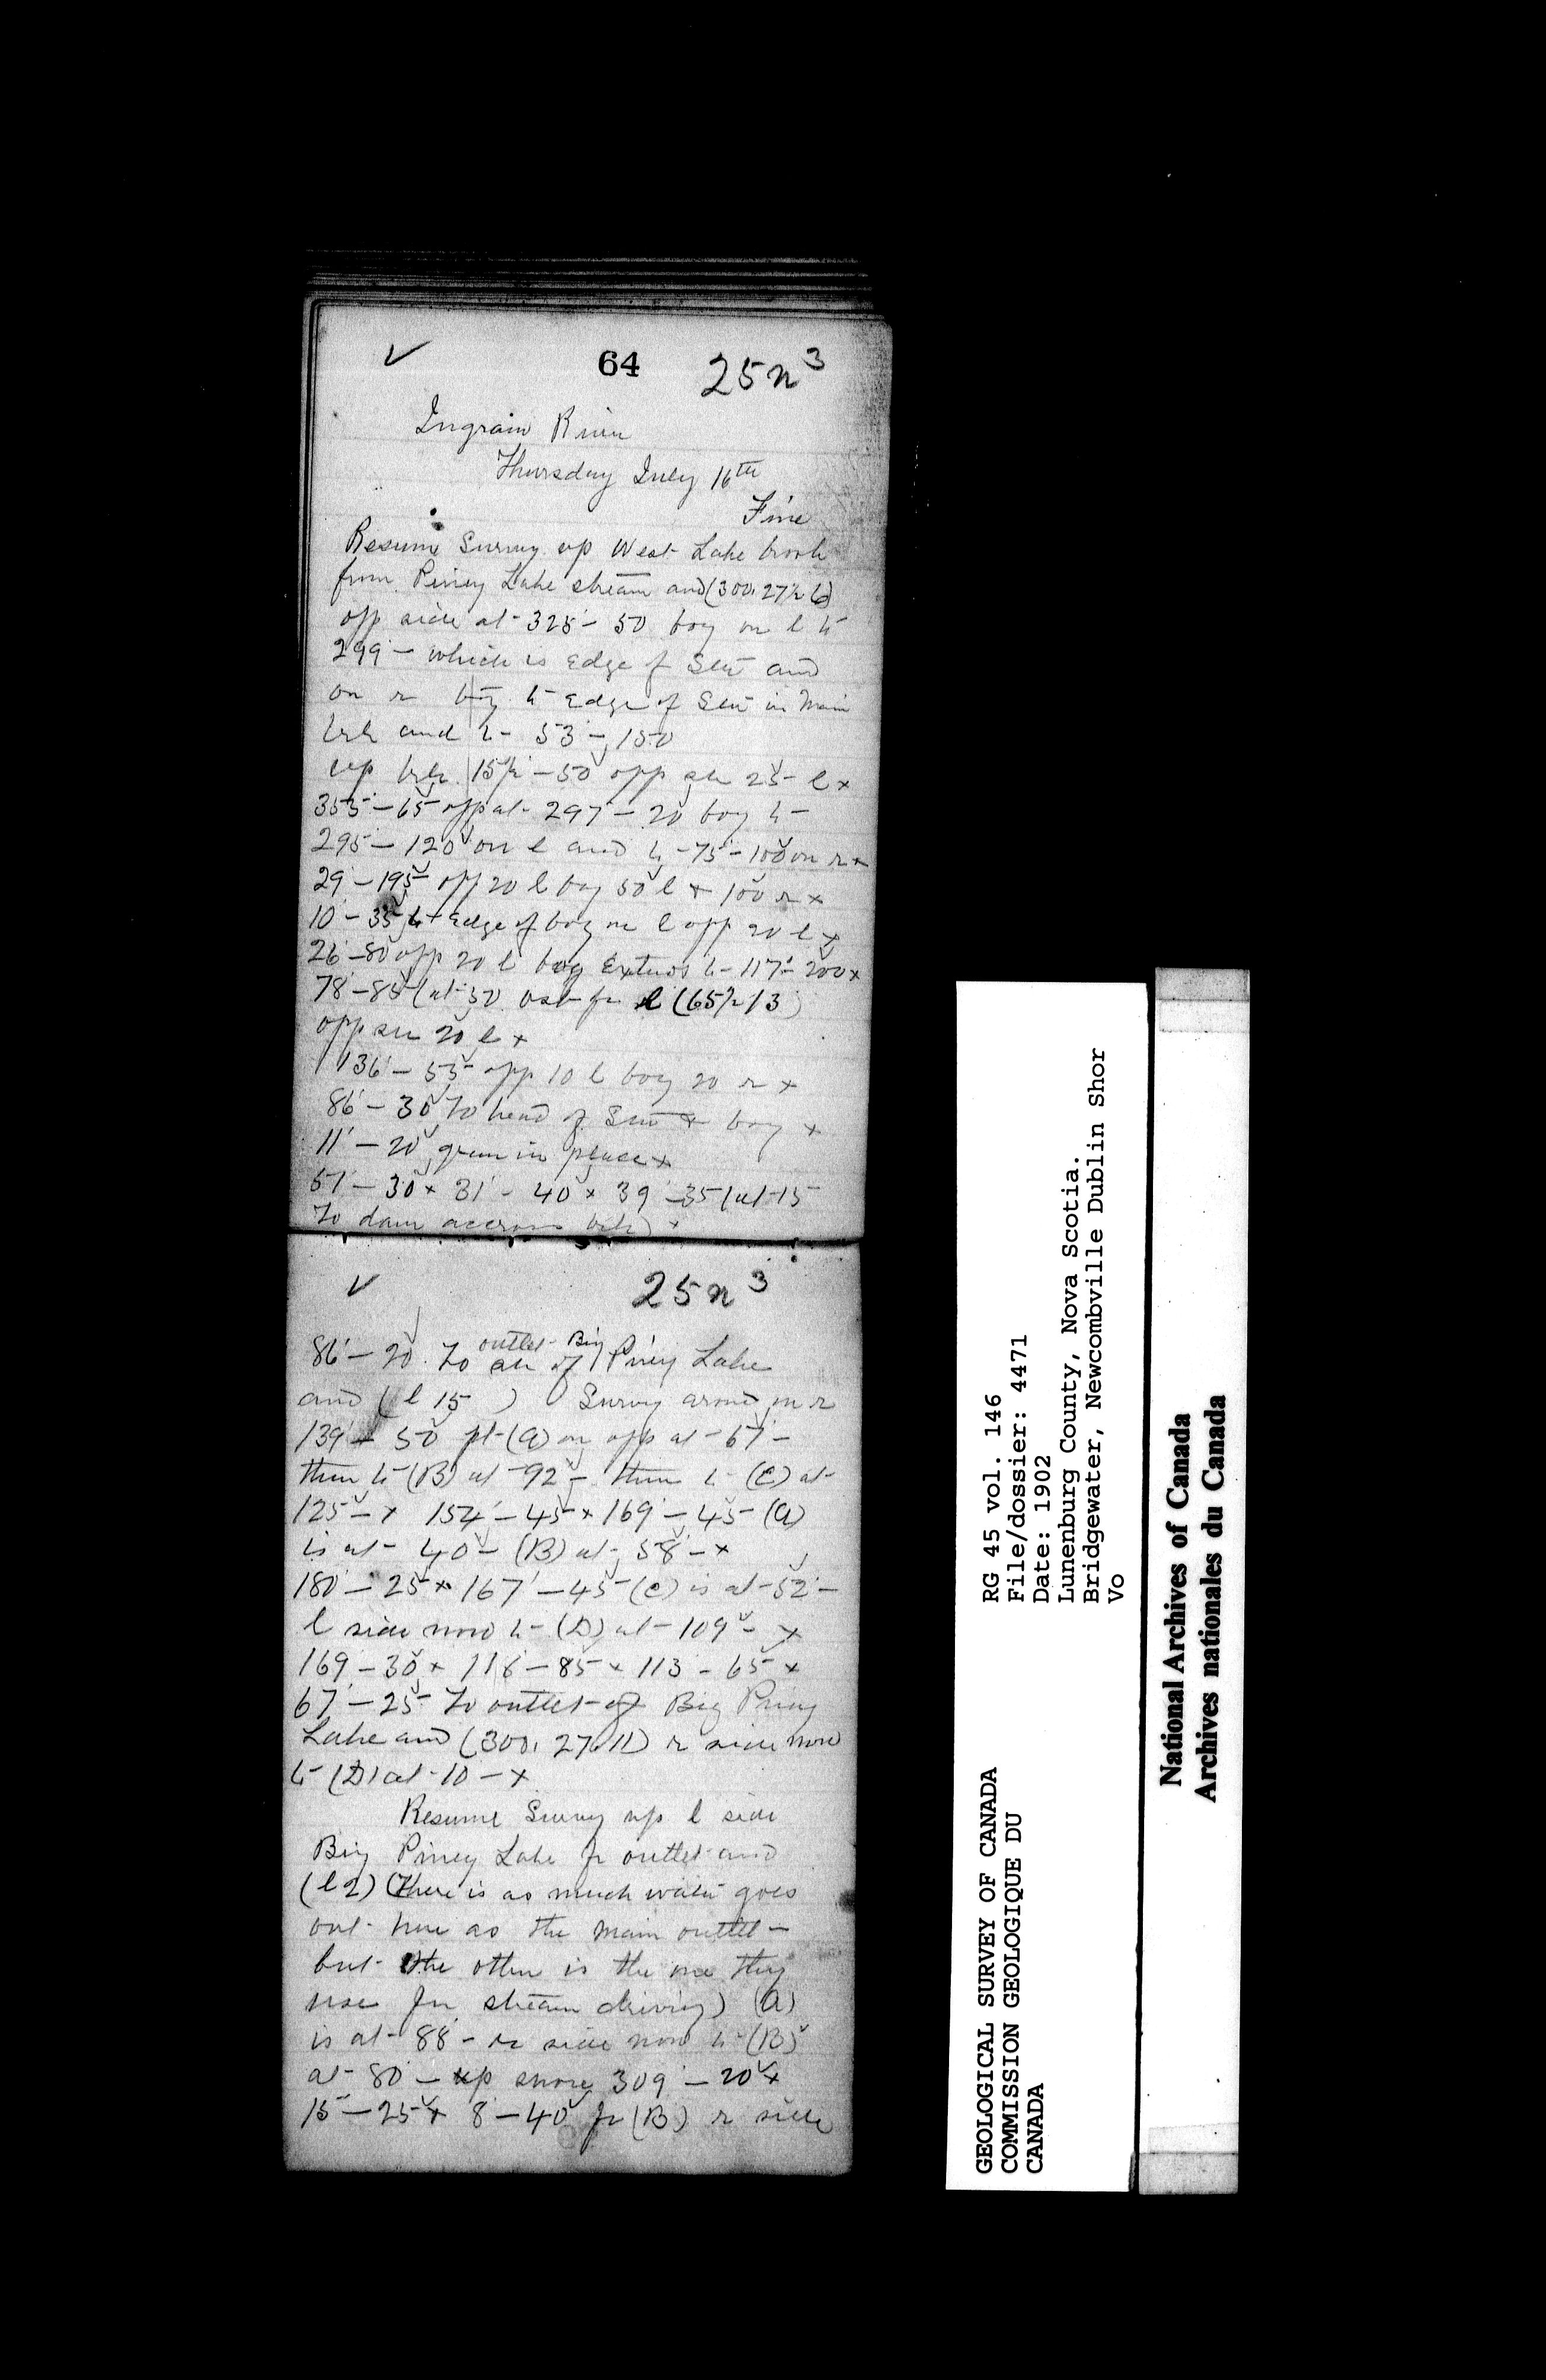 ✓ 64 25n³
Ingram River
Thursday July 16th
Fine
Resume Survey up West Lake brook
from Piney Lake stream and (300. 27½ 6)
opp side at 325 - 50 bog on l to
299 - which is Edge of and
on r bog to Edge of in Main
brk and to - 53 - 150
up brk 15½ - 50 opp 25 - l x
353 - 65 opp at 297 - 20 bog to
295 - 120 on l and to - 75 - 100 on r x
29 - 195 opp 20 l bog 50 l + 100 r x
10 - 35 to Edge of bog on l opp 20 l x
26 - 80 opp 20 l bog Extends to - 117 - 200 x
78 - 85 (at 50 l (65½ 13)
opp 20 l x
136 - 55 opp 10 l bog 20 r x
86 - 30 To head of + bog x
11 - 20 gran in place x
51 - 30 x 31 - 40 x 39 - 35 (at 15
To dam accross brk) x
✓ 25n³
86 - 20 To outlet of Big Piney Lake
and (l 15 ) Survey around on r
139 - 50 pt (A) on opp at - 67 -
then to (B) at 92 - then to (C) at
125 - x 154 - 45 x 169 - 45 - (A)
is at - 40 - (B) at 58 - x
180 - 25 x 167 - 45 - (C) is at - 52 -
l side now to - (D) at - 109 - x
169 - 30 x 116 - 85 x 113 - 65 x
67 - 25 To outlet of Big Piney
Lake and (300, 27. 11) r side now
to (D) at - 10 - x
Resume Survey up l side
Big Piney Lake fr outlet and
(l 2) (There is as much water goes
out here as the main outlet -
but the other is the one they
use for stream driving) (A)
is at - 88 - r side now to (B)
at - 80 - up shore 309 - 20 x
15 - 25 x 8 - 40 fr (B) r side
GEOLOGICAL SURVEY OF CANADA
COMMISSION GEOLOGIQUE DU
CANADA
RG 45 vol. 146
File/dossier: 4471
Date: 1902
Lunenburg County, Nova Scotia.
Bridgewater, Newcombville Dublin Shor
Vo
National Archives of Canada
Archives nationales du Canada